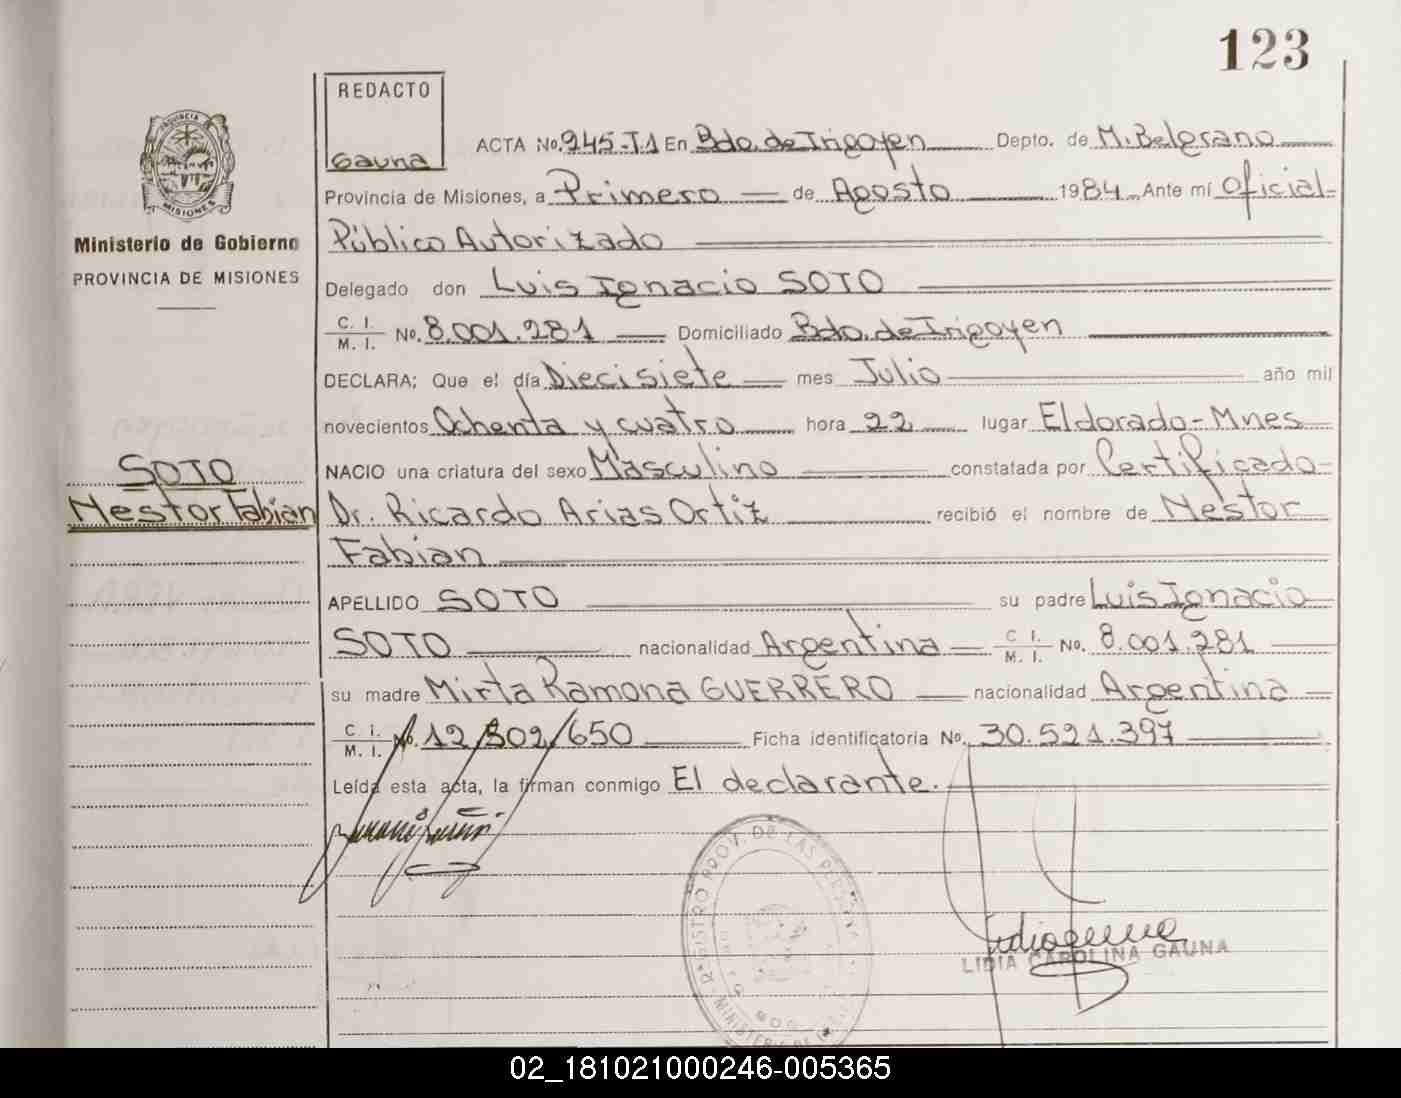 123
REDACTO
Gauna
PROVINCIA
MISIONES
Ministerio de Gobierno
PROVINCIA DE MISIONES
ACTA No. 245-T1 En Bdo. de Irigoyen Depto. de M. Belgrano
Provincia de Misiones, a Primero de Agosto 1984 Ante mí Oficial
Público Autorizado
Delegado don Luis Ignacio SOTO
C. I.
M. I. No. 8.001.281 Domiciliado Bdo. de Irigoyen
DECLARA; Que el día Diecisiete mes Julio año mil
novecientos Ochenta y cuatro hora 22 lugar Eldorado-Mnes
SOTO
Nestor Fabian
NACIO una criatura del sexo Masculino constatada por Certificado
Dr. Ricardo Arias Ortiz recibió el nombre de Nestor
Fabian
APELLIDO SOTO su padre Luis Ignacio
SOTO nacionalidad Argentina C I.
M. I. No. 8.001.281
su madre Mirta Ramona GUERRERO nacionalidad Argentina
C. I.
M. I. No. 12/302/650 Ficha identificatoria No. 30.521.397
Leída esta acta, la firman conmigo El declarante.
REGISTRO PROV. DE LAS PERSONAS
MINISTERIO DE
LIDIA CAROLINA GAUNA
02_181021000246-005365